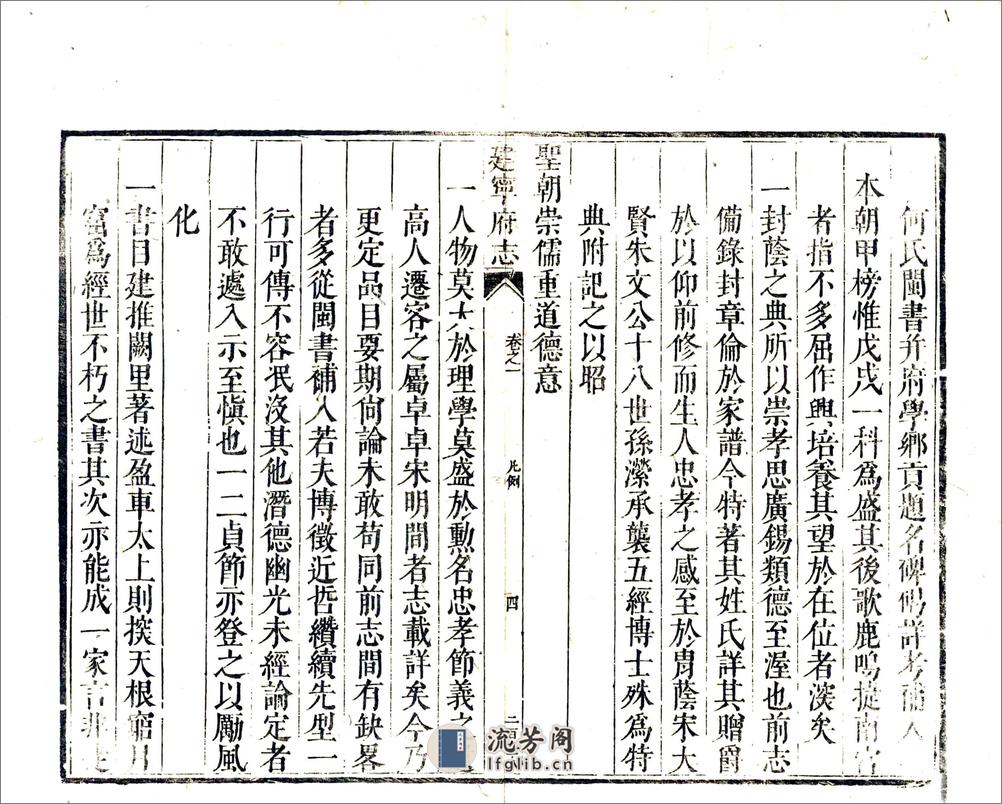 何氏閩書并府學鄉貢題名碑碣詳考補入
本朝甲榜惟戊戌一科為盛其後歌鹿鳴捷南宮
者指不多屈作興培養其望於在位者深矣
一封蔭之典所以崇孝思廣錫類德至渥也前志
備錄封章倫於家譜今特著其姓氏詳其贈爵
於以仰前修而生人忠孝之感至於胄蔭宋大
賢朱文公十八世孫瀠承襲五經博士殊為特
典附記之以昭
聖朝崇儒重道德意
建寧府志
卷之一
凡例
四
一人物莫大於理學莫盛於勳名忠孝節義之
高人遷客之屬卓卓宋明間者志載詳矣今乃
更定品目要期尙論未敢苟同前志間有缺畧
者多從閩書補入若夫博徵近哲纘續先型一
行可傳不容泯沒其他潛德幽光未經論定者
不敢處入示至愼也一二貞節亦登之以勵風
化
一書目建推闕里著述盈車太上則揆天根窟月
窟爲經世不朽之書其次亦能成一家言非
流芳阁
lfglib.cn